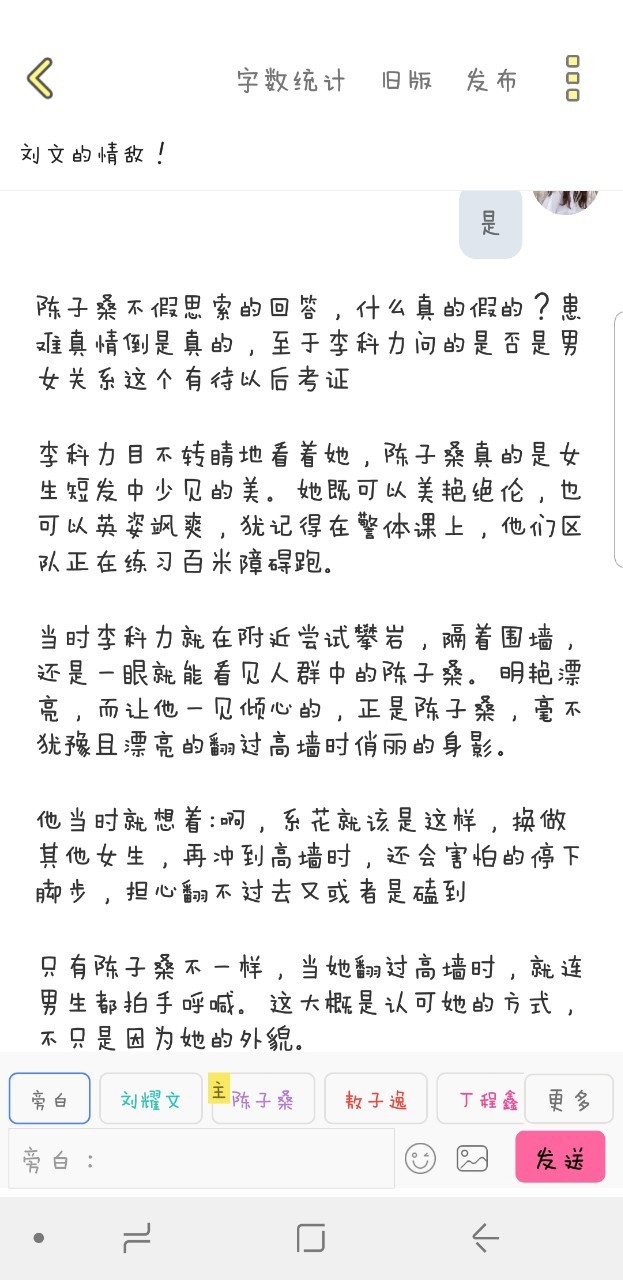 字数统计 旧版 发布
刘文的情敌！
是
陈子桑不假思索的回答，什么真的假的？患
难真情倒是真的，至于李科力问的是否是男
女关系这个有待以后考证
李科力目不转睛地看着她，陈子桑真的是女
生短发中少见的美。她既可以美艳绝伦，也
可以英姿飒爽，犹记得在警体课上，他们区
队正在练习百米障碍跑。
当时李科力就在附近尝试攀岩，隔着围墙，
还是一眼就能看见人群中的陈子桑。明艳漂
亮，而让他一见倾心的，正是陈子桑，毫不
犹豫且漂亮的翻过高墙时俏丽的身影。
他当时就想着:啊，系花就该是这样，换做
其他女生，再冲到高墙时，还会害怕的停下
脚步，担心翻不过去又或者是磕到
只有陈子桑不一样，当她翻过高墙时，就连
男生都拍手呼喊。这大概是认可她的方式，
不只是因为她的外貌。
旁白 刘耀文 主 陈子桑 敖子逸 丁程鑫 更多
旁白： 发送